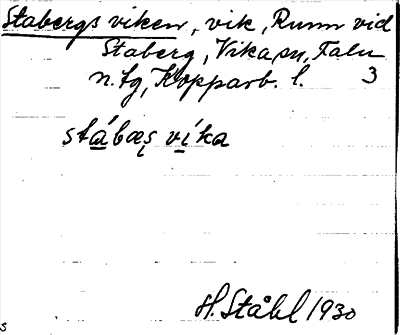 Stabergs viken, vik, Runn vid
Staberg, Vika sn, Falu
n. tg, Kopparb. l. 3
stábæs víka
H. Ståhl 1930
s